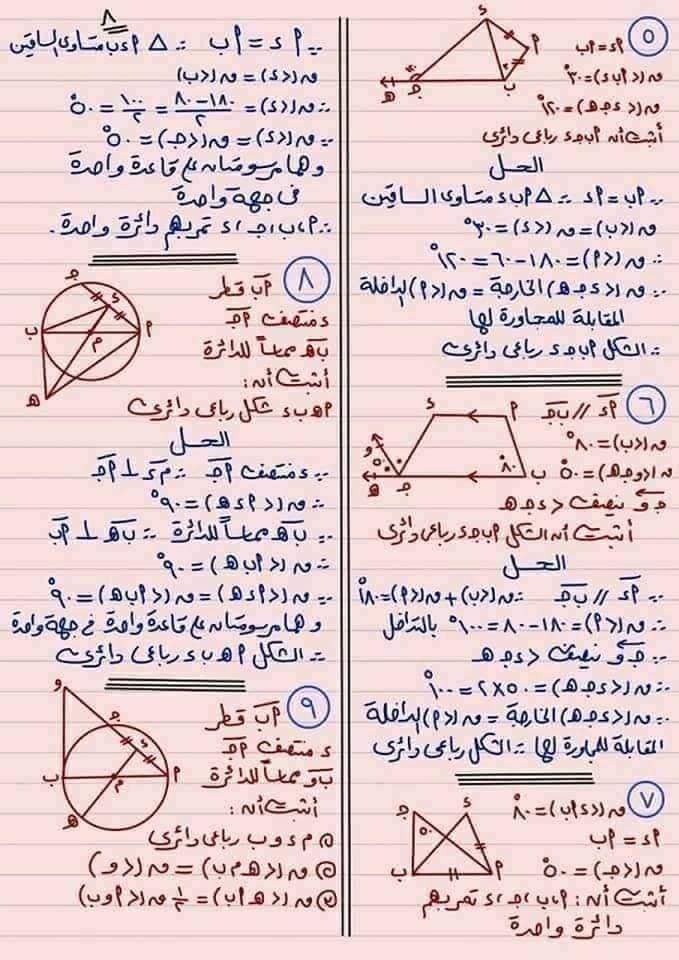 ٥
أ ء = أ ب
ق(∠أ ب ء) = ٣٠°
ق(∠ء جـ هـ) = ١٢٠°
أثبت أن أ ب جـ ء رباعى دائرى
الحل
∵ أ ب = أ ء ∴ △ أ ب ء متساوى الساقين
ق(∠ب) = ق(∠ء) = ٣٠°
∴ ق(∠أ) = ١٨٠ - ٦٠ = ١٢٠°
∵ ق(∠ء جـ هـ) الخارجة = ق(∠أ) الداخلة
المقابلة للمجاورة لها
∴ الشكل أ ب جـ ء رباعى دائرى
٦
أ ء // ب جـ
ق(∠ب) = ٨٠°
ق(∠و جـ هـ) = ٥٠°
جـ و ينصف ∠ء جـ هـ
أثبت أن الشكل أ ب جـ ء رباعى دائرى
الحل
∵ أ ء // ب جـ ∴ ق(∠ب) + ق(∠أ) = ١٨٠°
∴ ق(∠أ) = ١٨٠ - ٨٠ = ١٠٠° بالتداخل
∵ جـ و ينصف ∠ء جـ هـ
∴ ق(∠ء جـ هـ) = ٥٠ × ٢ = ١٠٠°
∴ ق(∠ء جـ هـ) الخارجة = ق(∠أ) الداخلة
المقابلة للمجاورة لها ∴ الشكل رباعى دائرى
٧
ق(∠ء أ ب) = ٨٠°
أ ء = أ ب
ق(∠جـ) = ٥٠°
أثبت أن : أ، ب، جـ، ء تمر بهم
دائرة واحدة
٨
∵ أ ء = أ ب ∴ △ أ ء ب متساوى الساقين
ق(∠ء) = ق(∠ب)
∴ ق(∠ء) = ١٨٠ - ٨٠ / ٢ = ١٠٠ / ٢ = ٥٠°
∵ ق(∠ء) = ق(∠جـ) = ٥٠°
وهما مرسومتان على قاعدة واحدة
فى جهة واحدة
∴ أ، ب، جـ، ء تمر بهم دائرة واحدة.
٨
أ ب قطر
ء منتصف أ جـ
ب هـ مماساً للدائرة
أثبت أن :
أ هـ ب ء شكل رباعى دائرى
الحل
∵ ء منتصف أ جـ ∴ م ء ⊥ أ جـ
∴ ق(∠أ ء هـ) = ٩٠°
∵ ب هـ مماساً للدائرة ∴ ب هـ ⊥ أ ب
∴ ق(∠أ ب هـ) = ٩٠°
∵ ق(∠أ ء هـ) = ق(∠أ ب هـ) = ٩٠°
وهما مرسومتان على قاعدة واحدة فى جهة واحدة
∴ الشكل أ هـ ب ء رباعى دائرى
٩
أ ب قطر
ء منتصف أ جـ
ب و مماساً للدائرة
أثبت أن :
① م ء و ب رباعى دائرى
② ق(∠هـ م ب) = ق(∠و)
③ ق(∠هـ أ ب) = ½ ق(∠أ و ب)